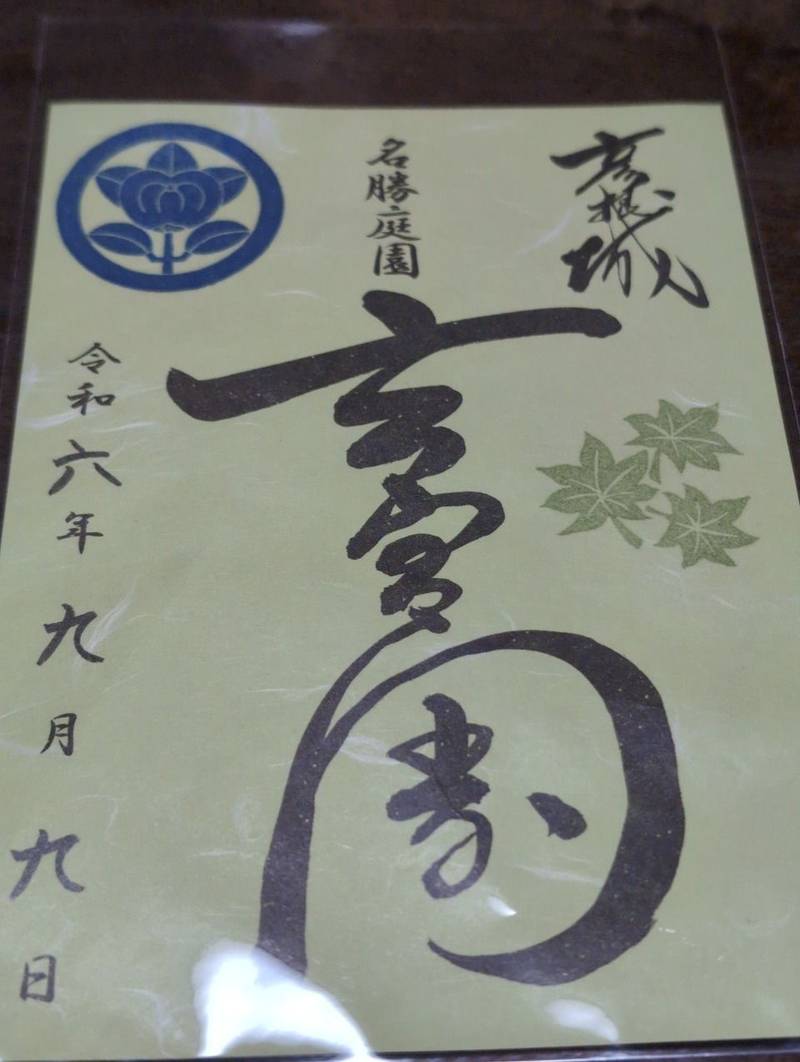 彦根城
名勝庭園
玄宮園
令和六年九月九日